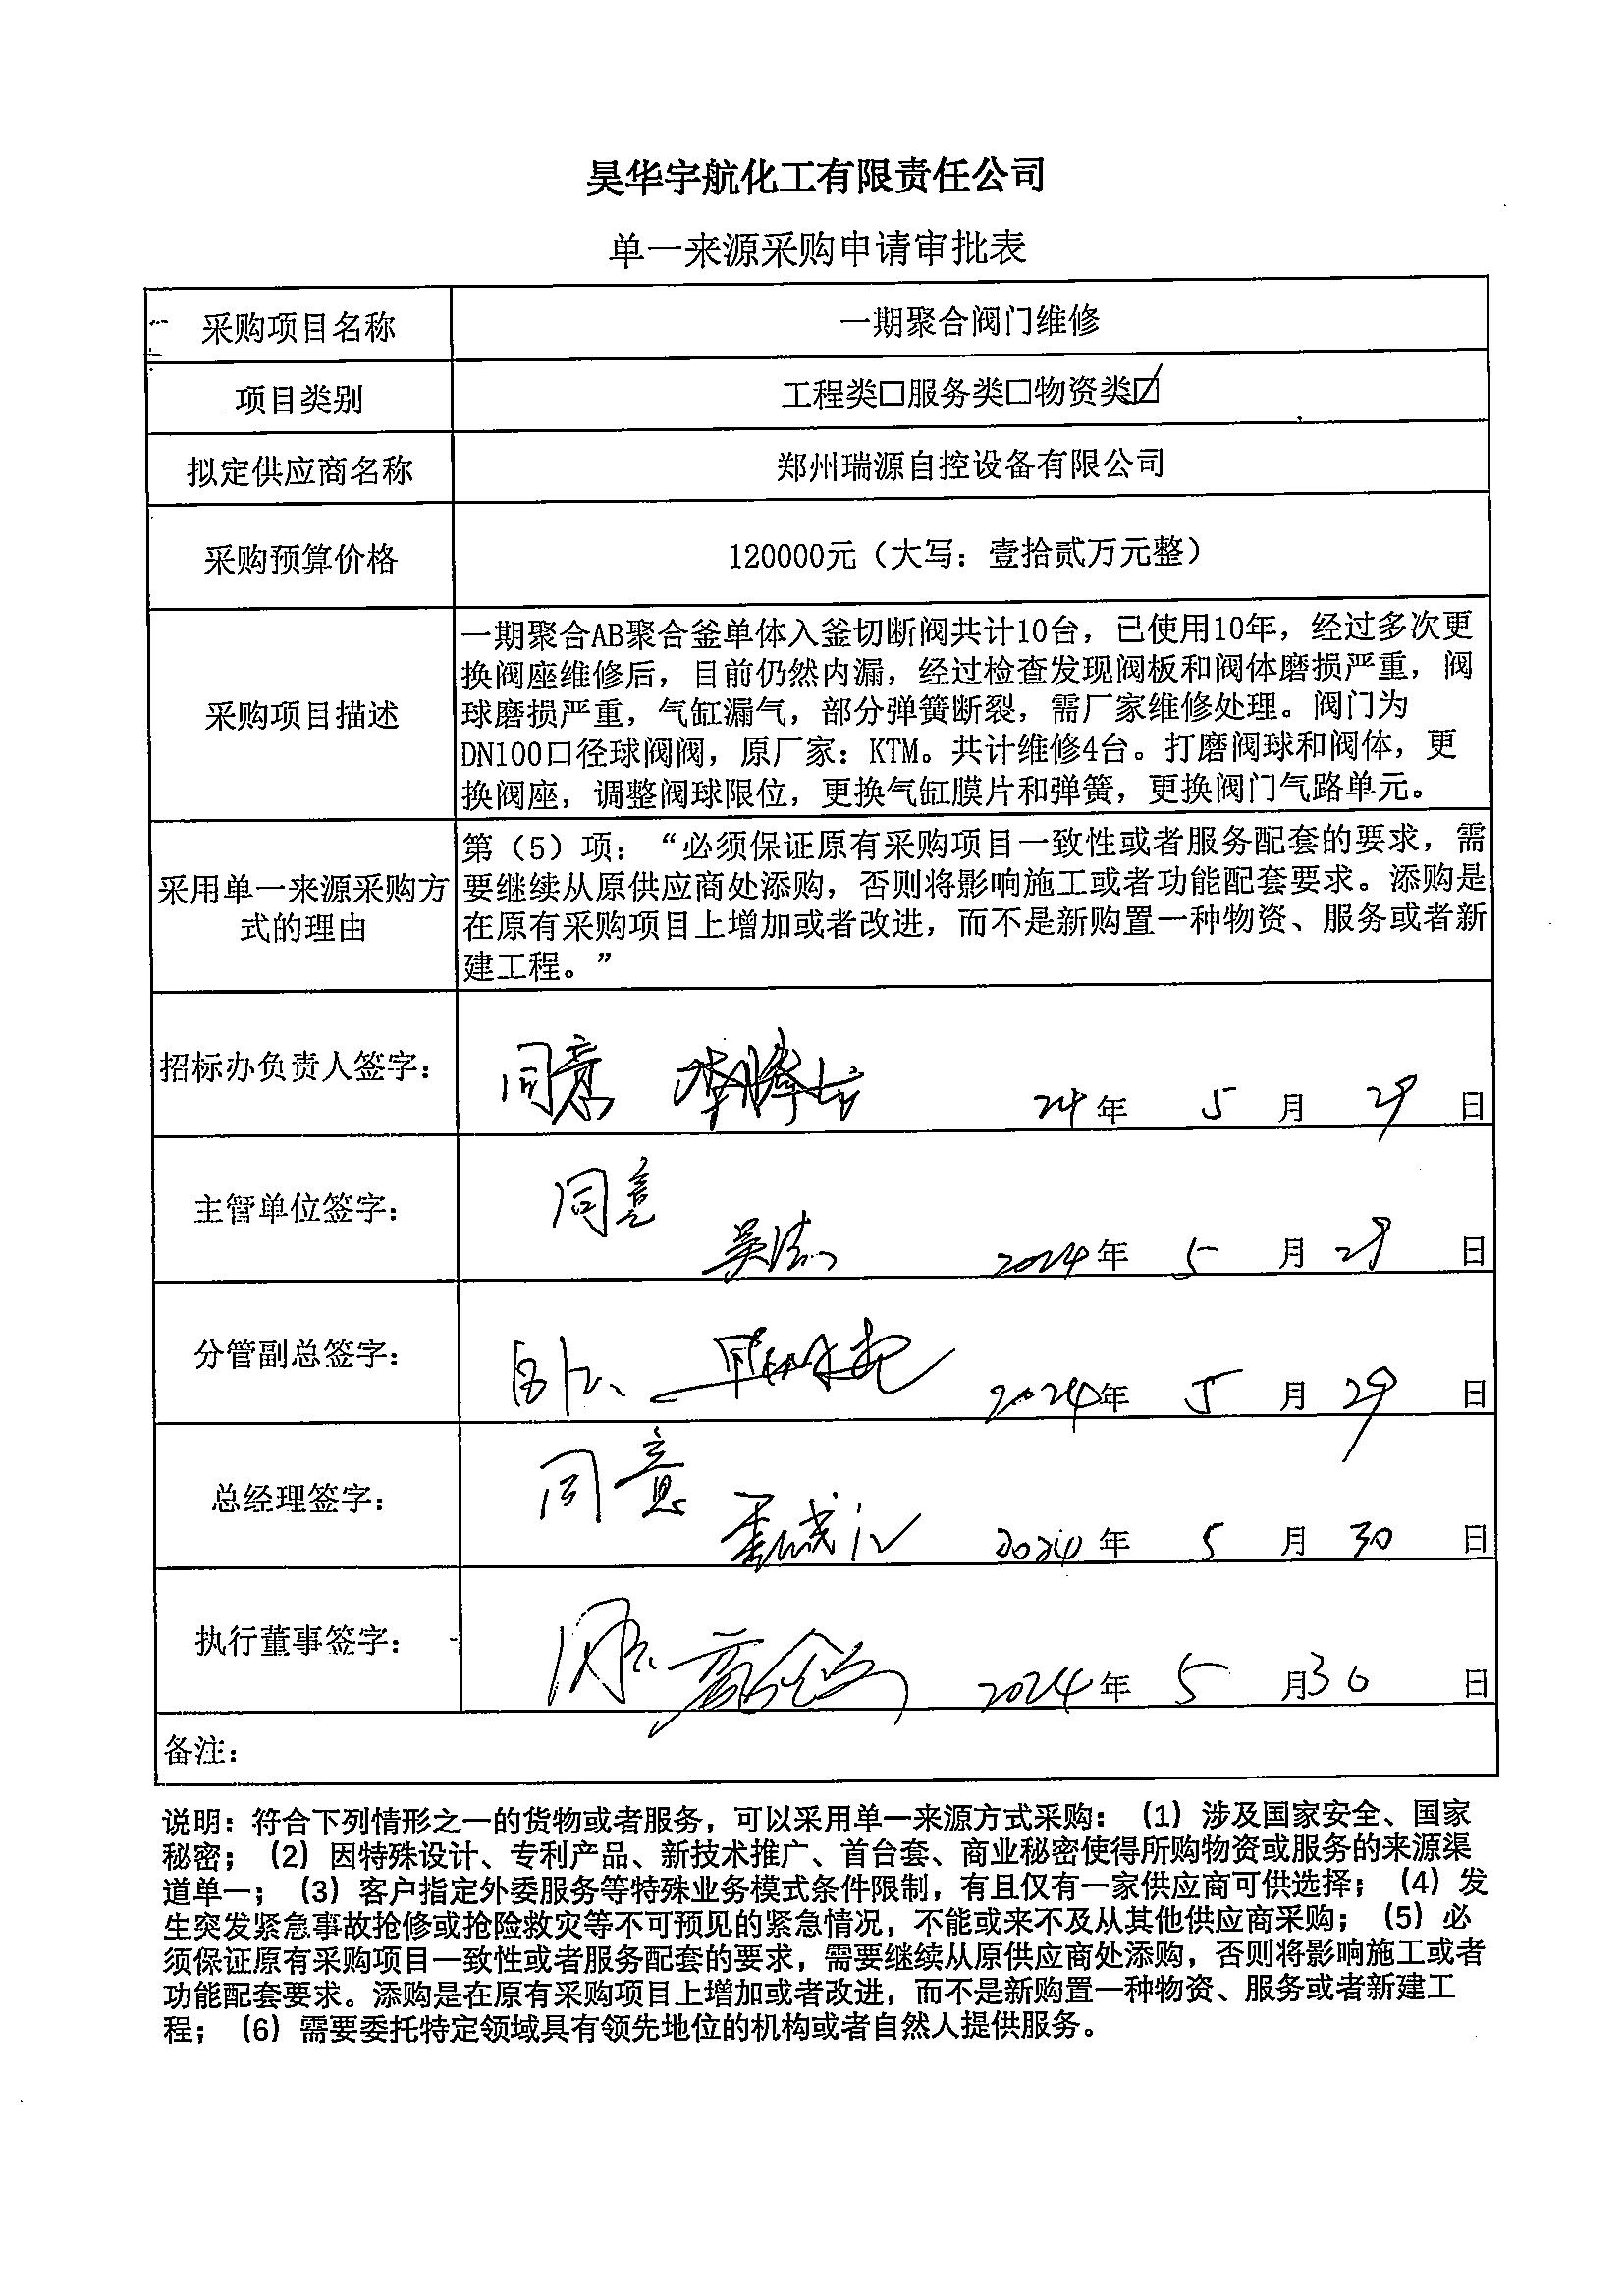 昊华宇航化工有限责任公司
单一来源采购申请审批表
采购项目名称 一期聚合阀门维修
项目类别 工程类□服务类□物资类☑
拟定供应商名称 郑州瑞源自控设备有限公司
采购预算价格 120000元（大写：壹拾贰万元整）
采购项目描述
一期聚合AB聚合釜单体入釜切断阀共计10台，已使用10年，经过多次更
换阀座维修后，目前仍然内漏，经过检查发现阀板和阀体磨损严重，阀
球磨损严重，气缸漏气，部分弹簧断裂，需厂家维修处理。阀门为
DN100口径球阀阀，原厂家：KTM。共计维修4台。打磨阀球和阀体，更
换阀座，调整阀球限位，更换气缸膜片和弹簧，更换阀门气路单元。
采用单一来源采购方
式的理由
第（5）项：“必须保证原有采购项目一致性或者服务配套的要求，需
要继续从原供应商处添购，否则将影响施工或者功能配套要求。添购是
在原有采购项目上增加或者改进，而不是新购置一种物资、服务或者新
建工程。”
招标办负责人签字： 同意 24年 5月 29日
主管单位签字： 同意
2024年 5月 29日
分管副总签字： 2024年 5月 29日
总经理签字： 同意
2024年 5月 30日
执行董事签字： 2024年 5月 30日
备注：
说明：符合下列情形之一的货物或者服务，可以采用单一来源方式采购：（1）涉及国家安全、国家
秘密；（2）因特殊设计、专利产品、新技术推广、首台套、商业秘密使得所购物资或服务的来源渠
道单一；（3）客户指定外委服务等特殊业务模式条件限制，有且仅有一家供应商可供选择；（4）发
生突发紧急事故抢修或抢险救灾等不可预见的紧急情况，不能或来不及从其他供应商采购；（5）必
须保证原有采购项目一致性或者服务配套的要求，需要继续从原供应商处添购，否则将影响施工或者
功能配套要求。添购是在原有采购项目上增加或者改进，而不是新购置一种物资、服务或者新建工
程；（6）需要委托特定领域具有领先地位的机构或者自然人提供服务。